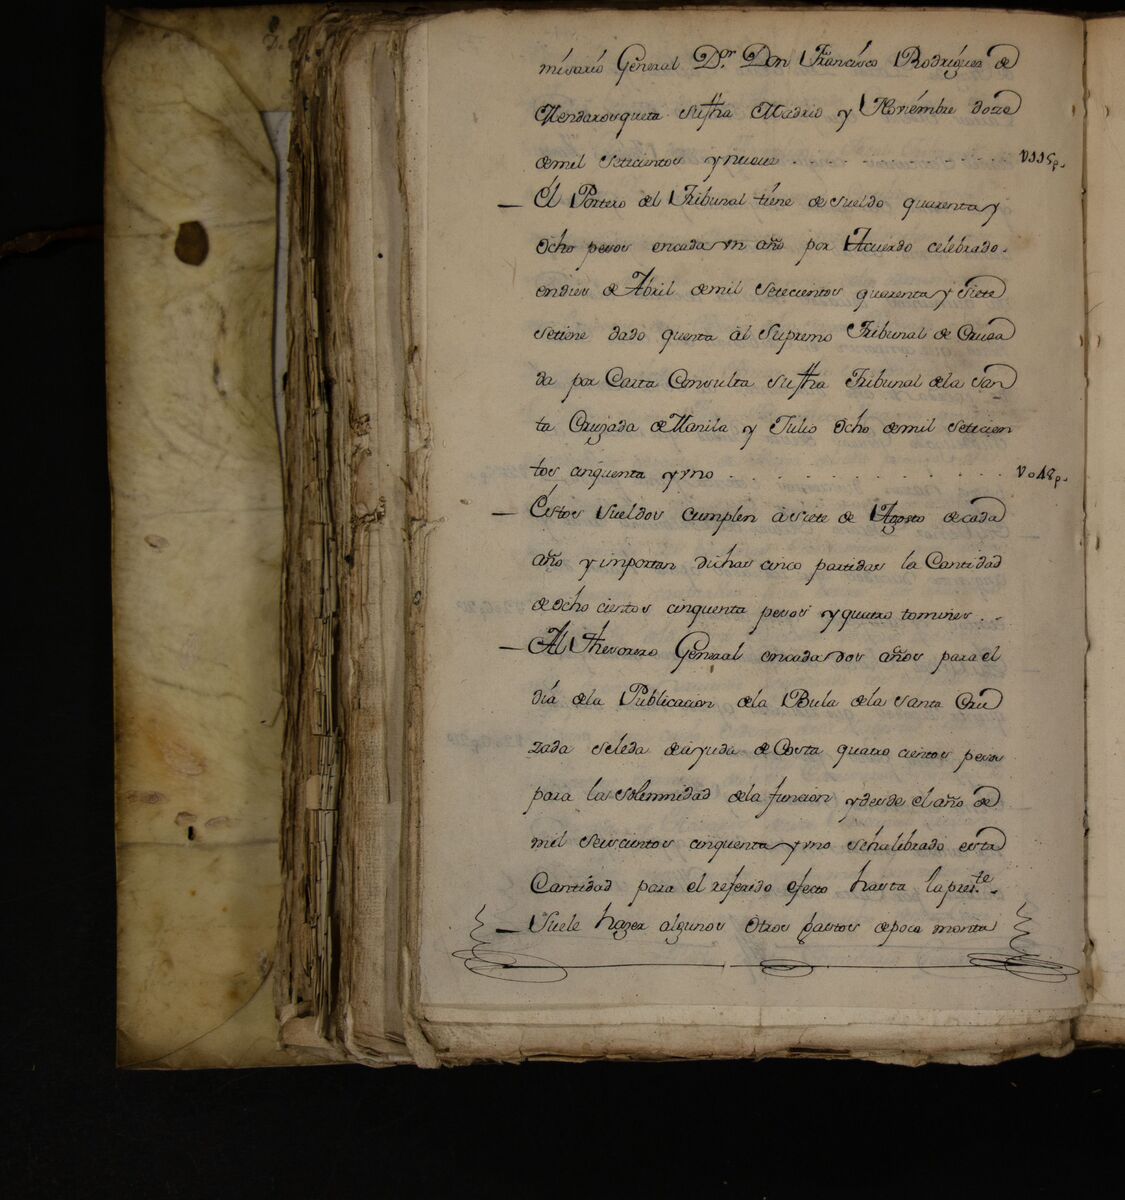 misario General D.or Don Francisco Rodriguez de
Mendarosqueta sufha Madrid y Noviembre doze
demil setecientos y nueve
El Portero del Tribunal tiene de sueldo quarenta y
ocho pesos encada vn año por Acuerdo celebrado
endies de Abril demil setecientos quarenta y siete
setiene dado quenta àl Supremo Tribunal de Cruza
da por Carta Consulta sufha Tribunal dela San
ta Cruzada de Manila y Julio Ocho demil setecien
tos cinquenta y vno
Estos Sueldos Cumplen à siete de Agosto decada
año y inportan dichas cinco partidas la Cantidad
de ocho cientos cinquenta pesos y quatro tomines
Al Thesorero General encada dos años para el
día dela Publicacion dela Bula dela Santa Cru
zada seleda deàyuda de Costa quatro cientos pesos
para la solemnidad dela funcion y desde el año de
mil seiscientos cinquenta y vno sehalibrado esta
Cantidad para el referido efecto hasta lapres.te
Suele hazer algunos Otros gastos depoca monta